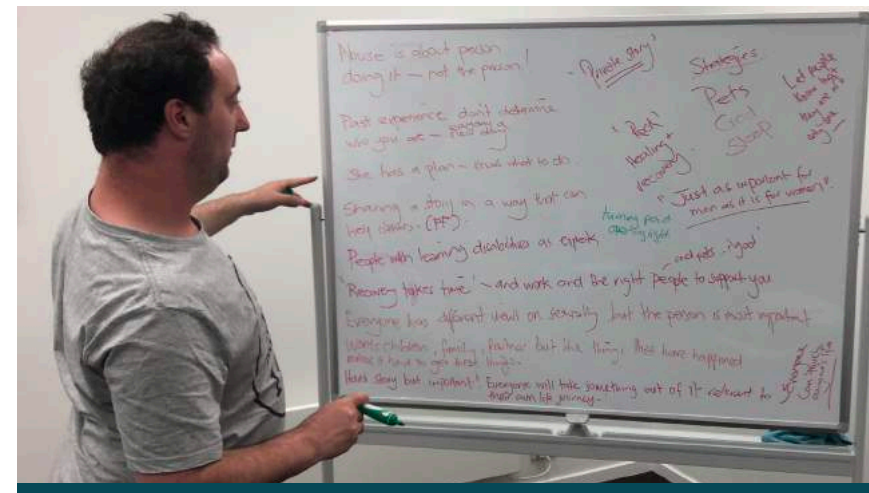 Abuse is about person
doing it – not the person!
Past experience don't determine
who you are –
She has a plan – knows what to do.
Sharing a story in a way that can
help
People with learning disabilities as experts
'Recovery takes time' – and work and the right people to support you
Everyone has different views on sexuality but the person is most important
children, family, partner but the things that have happened
make it hard to
Hard story but important! Everyone will take something out of it relevant to
their own life journey.
- 'Private story'
Strategies.
Pets
God
Sleep
Let people
know they
are not
only one
Healing +
recovery.
"Just as important for
men as it is for women".
turning pain
and pets 'good'